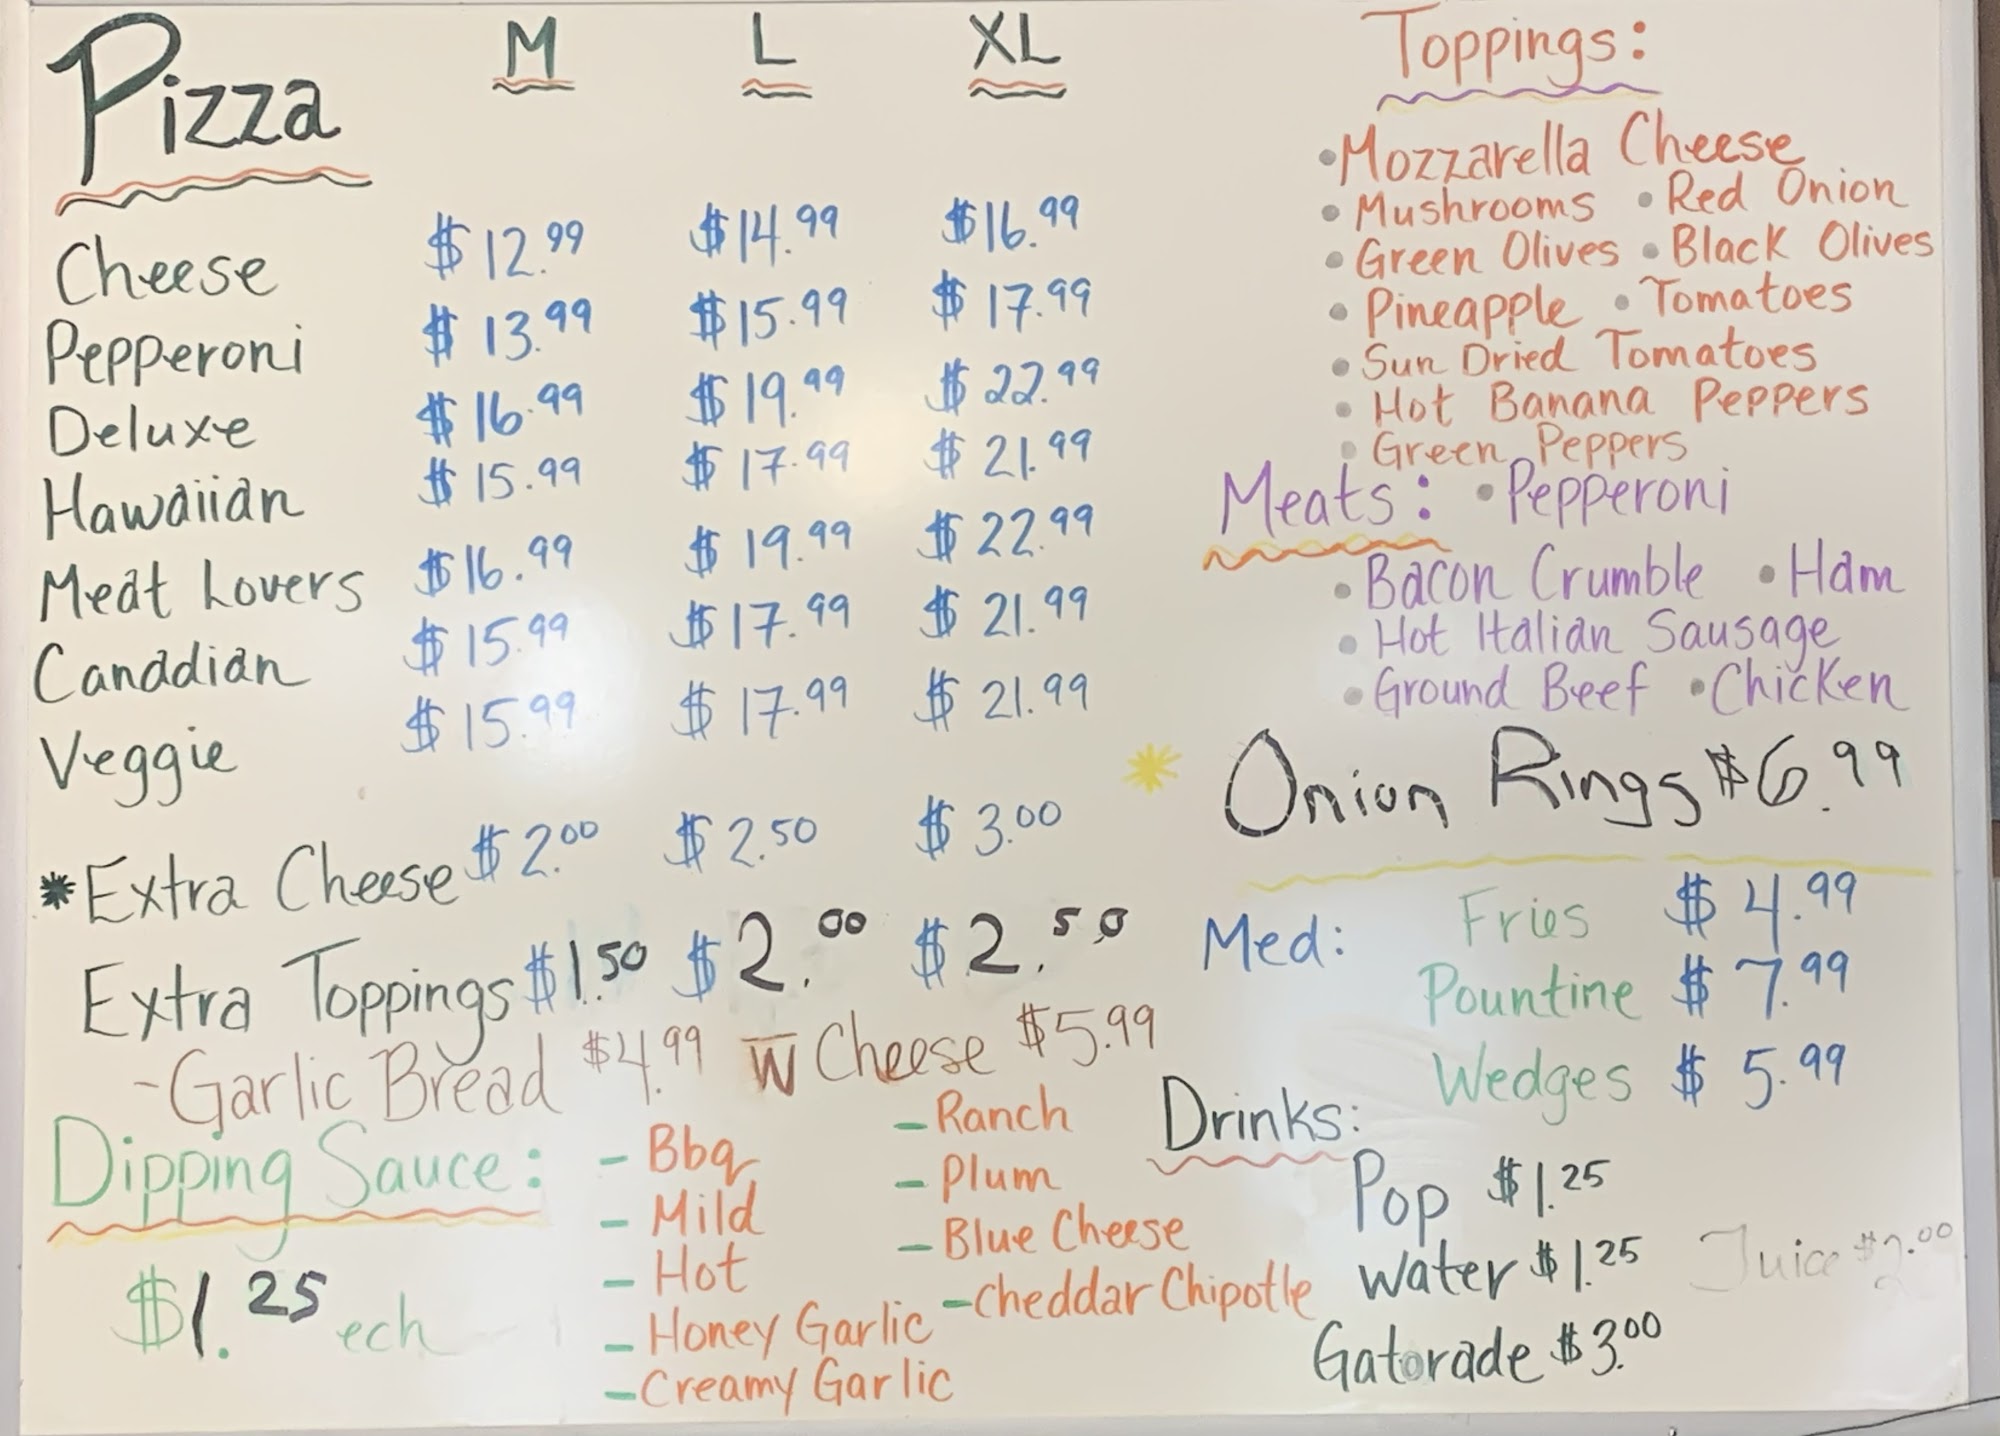 Pizza M L XL
Cheese $12.99 $14.99 $16.99
Pepperoni $13.99 $15.99 $17.99
Deluxe $16.99 $19.99 $22.99
Hawaiian $15.99 $17.99 $21.99
Meat Lovers $16.99 $19.99 $22.99
Canadian $15.99 $17.99 $21.99
Veggie $15.99 $17.99 $21.99
*Extra Cheese $2.00 $2.50 $3.00
Extra Toppings $1.50 $2.00 $2.50
-Garlic Bread $4.99 W Cheese $5.99
Dipping Sauce:
$1.25 ech
- Bbq
- Mild
- Hot
- Honey Garlic
- Creamy Garlic
- Ranch
- Plum
- Blue Cheese
- Cheddar Chipotle
Toppings:
• Mozzarella Cheese
• Mushrooms • Red Onion
• Green Olives • Black Olives
• Pineapple • Tomatoes
• Sun Dried Tomatoes
• Hot Banana Peppers
• Green Peppers
Meats: • Pepperoni
• Bacon Crumble • Ham
• Hot Italian Sausage
• Ground Beef • Chicken
* Onion Rings $6.99
Med: Fries $4.99
Pountine $7.99
Wedges $5.99
Drinks:
Pop $1.25
Water $1.25 Juice $2.00
Gatorade $3.00